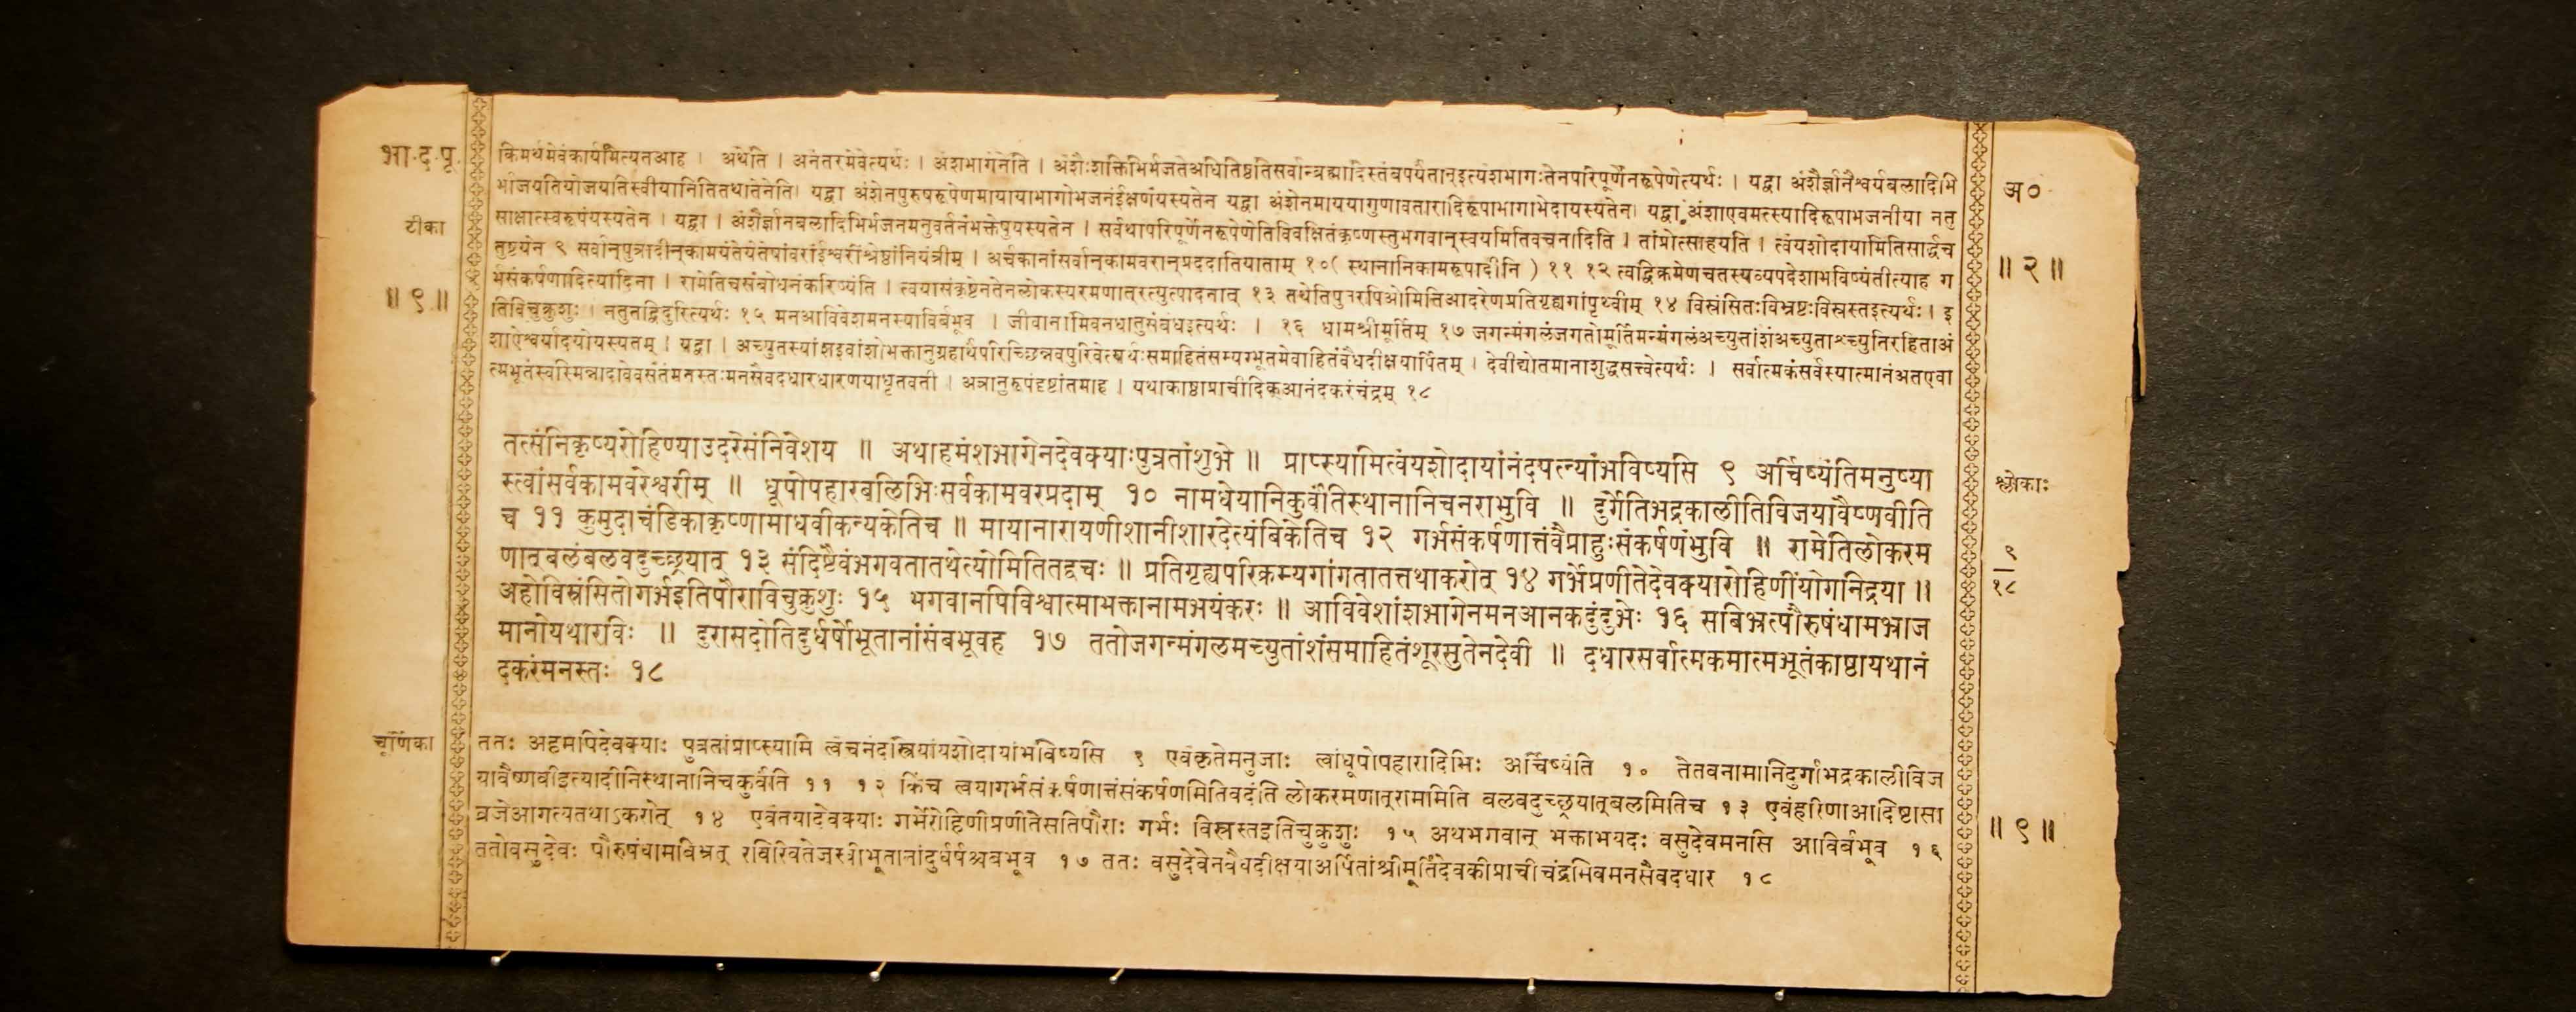 भा.द.पू.
टीका
॥ ९ ॥
चूर्णिका
किमर्थमेवंकार्यमित्यतआह । अथेति । अनंतरमेवेत्यर्थः । अंशभागेनेति । अंशैःशक्तिभिर्भजतेअधितिष्ठतिसर्वान्ब्रह्मादिस्तंबपर्यंतान्इत्यंशभागःतेनपरिपूर्णेनरूपेणेत्यर्थः । यद्वा अंशैर्ज्ञानैश्वर्यबलादिभि
र्भाजयतियोजयतिस्वीयानितितथातेनेति। यद्वा अंशेनपुरुषरूपेणमायायाभागोभजनंईक्षणंयस्यतेन यद्वा अंशेनमाययागुणावतारादिरूपाभागाभेदायस्यतेन। यद्वा अंशाएवमत्स्यादिरूपाभजनीया नतु
साक्षात्स्वरूपंयस्यतेन । यद्वा । अंशैर्ज्ञानबलादिभिर्भजनमनुवर्तनंभक्तेषुयस्यतेन । सर्वथापरिपूर्णेनरूपेणेतिविवक्षितंकृष्णस्तुभगवान्स्वयमितिवचनादिति । तांप्रोत्साहयति । त्वंयशोदायामितिसार्द्धच
तुष्टयेन ९ सर्वान्पुत्रादीन्कामयंतेयेतेषांवरांईश्वरींश्रेष्ठांनियंत्रीम् । अर्चकानांसर्वान्कामवरान्प्रददातियाताम् १०( स्थानानिकामरूपादीनि ) ११ १२ त्वद्विक्रमेणचतस्यव्यपदेशाभविष्यंतीत्याह ग
र्भसंकर्षणादित्यादिना । रामेतिचसंबोधनंकरिष्यंति । त्वयासंकृष्टेनतेनलोकस्यरमणात्रत्युत्पादनात् १३ तथेतिपुनरपिओमितिआदरेणप्रतिगृह्यगांपृथ्वीम् १४ विस्रंसितःविभ्रष्टःविस्रस्तइत्यर्थः। इ
तिविचुक्रुशुः । नतुतद्विदुरित्यर्थः १५ मनआविवेशमनस्याविर्बभूव । जीवानामिवनधातुसंबंधइत्यर्थः । १६ धामश्रीमूर्तिम् १७ जगन्मंगलंजगतोमूर्तिमन्मंगलंअच्युतांशंअच्युताश्च्युतिरहिताअं
शाऐश्वर्यादयोयस्यतम् । यद्वा । अच्युतस्यांशइवांशोभक्तानुग्रहार्थंपरिच्छिन्नवपुरिवेत्यर्थःसमाहितंसम्यग्भूतमेवाहितंवैधदीक्षयार्पितम् । देवीद्योतमानाशुद्धसत्त्वेत्यर्थः । सर्वात्मकंसर्वस्यात्मानंअतएवा
त्मभूतंस्वस्मिन्नादावेवसंतंमनस्तःमनसैवदधारधारणयाधृतवती । अत्रानुरूपंदृष्टांतमाह । यथाकाष्ठाप्राचीदिक्आनंदकरंचंद्रम् १८
तत्संनिकृष्यरोहिण्याउदरेसंनिवेशय ॥ अथाहमंशभागेनदेवक्याःपुत्रतांशुभे ॥ प्राप्स्यामित्वंयशोदायांनंदपत्न्यांभविष्यसि ९ अर्चिष्यंतिमनुष्या
स्त्वांसर्वकामवरेश्वरीम् ॥ धूपोपहारबलिभिःसर्वकामवरप्रदाम् १० नामधेयानिकुर्वंतिस्थानानिचनराभुवि ॥ दुर्गेतिभद्रकालीतिविजयावैष्णवीति
च ११ कुमुदाचंडिकाकृष्णामाधवीकन्यकेतिच ॥ मायानारायणीशानीशारदेत्यंबिकेतिच १२ गर्भसंकर्षणात्तंवैप्राहुःसंकर्षणंभुवि ॥ रामेतिलोकरम
णात्बलंबलवदुच्छ्रयात् १३ संदिष्टैवंभगवतातथेत्योमितितद्वचः ॥ प्रतिगृह्यपरिक्रम्यगांगतातत्तथाकरोत् १४ गर्भेप्रणीतेदेवक्यारोहिणींयोगनिद्रया ॥
अहोविस्रंसितोगर्भइतिपौराविचुक्रुशुः १५ भगवानपिविश्वात्माभक्तानामभयंकरः ॥ आविवेशांशभागेनमनआनकदुंदुभेः १६ सबिभ्रत्पौरुषंधामभ्राज
मानोयथारविः ॥ दुरासदोतिदुर्धर्षोभूतानांसंबभूवह १७ ततोजगन्मंगलमच्युतांशंसमाहितंशूरसुतेनदेवी ॥ दधारसर्वात्मकमात्मभूतंकाष्ठायथानं
दकरंमनस्तः १८
ततः अहमपिदेवक्याः पुत्रतांप्राप्स्यामि त्वंचनंदस्त्रियांयशोदायांभविष्यसि ९ एवंकृतेमनुजाः त्वांधूपोपहारादिभिः अर्चिष्यंति १० तेतवनामानिदुर्गाभद्रकालीविज
यावैष्णवीइत्यादीनिस्थानानिचकुर्वंति ११ १२ किंच त्वयागर्भसंकर्षणात्तंसंकर्षणमितिवदंति लोकरमणात्राममिति बलवदुच्छ्रयात्बलमितिच १३ एवंहरिणाआदिष्टासा
व्रजेआगत्यतथाऽकरोत् १४ एवंतयादेवक्याः गर्भेरोहिणींप्रणीतेसतिपौराः गर्भः विस्रस्तइतिचुक्रुशुः १५ अथभगवान् भक्ताभयदः वसुदेवमनसि आविर्बभूव १६
ततोवसुदेवः पौरुषंधामबिभ्रत् रविरिवतेजस्वीभूतानांदुर्धर्षश्चबभूव १७ ततः वसुदेवेनवैधदीक्षयाअर्पितांश्रीमूर्तिंदेवकीप्राचीचंद्रमिवमनसैवदधार १८
अ०
॥ २ ॥
श्लोकाः
९
१८
॥ ९ ॥